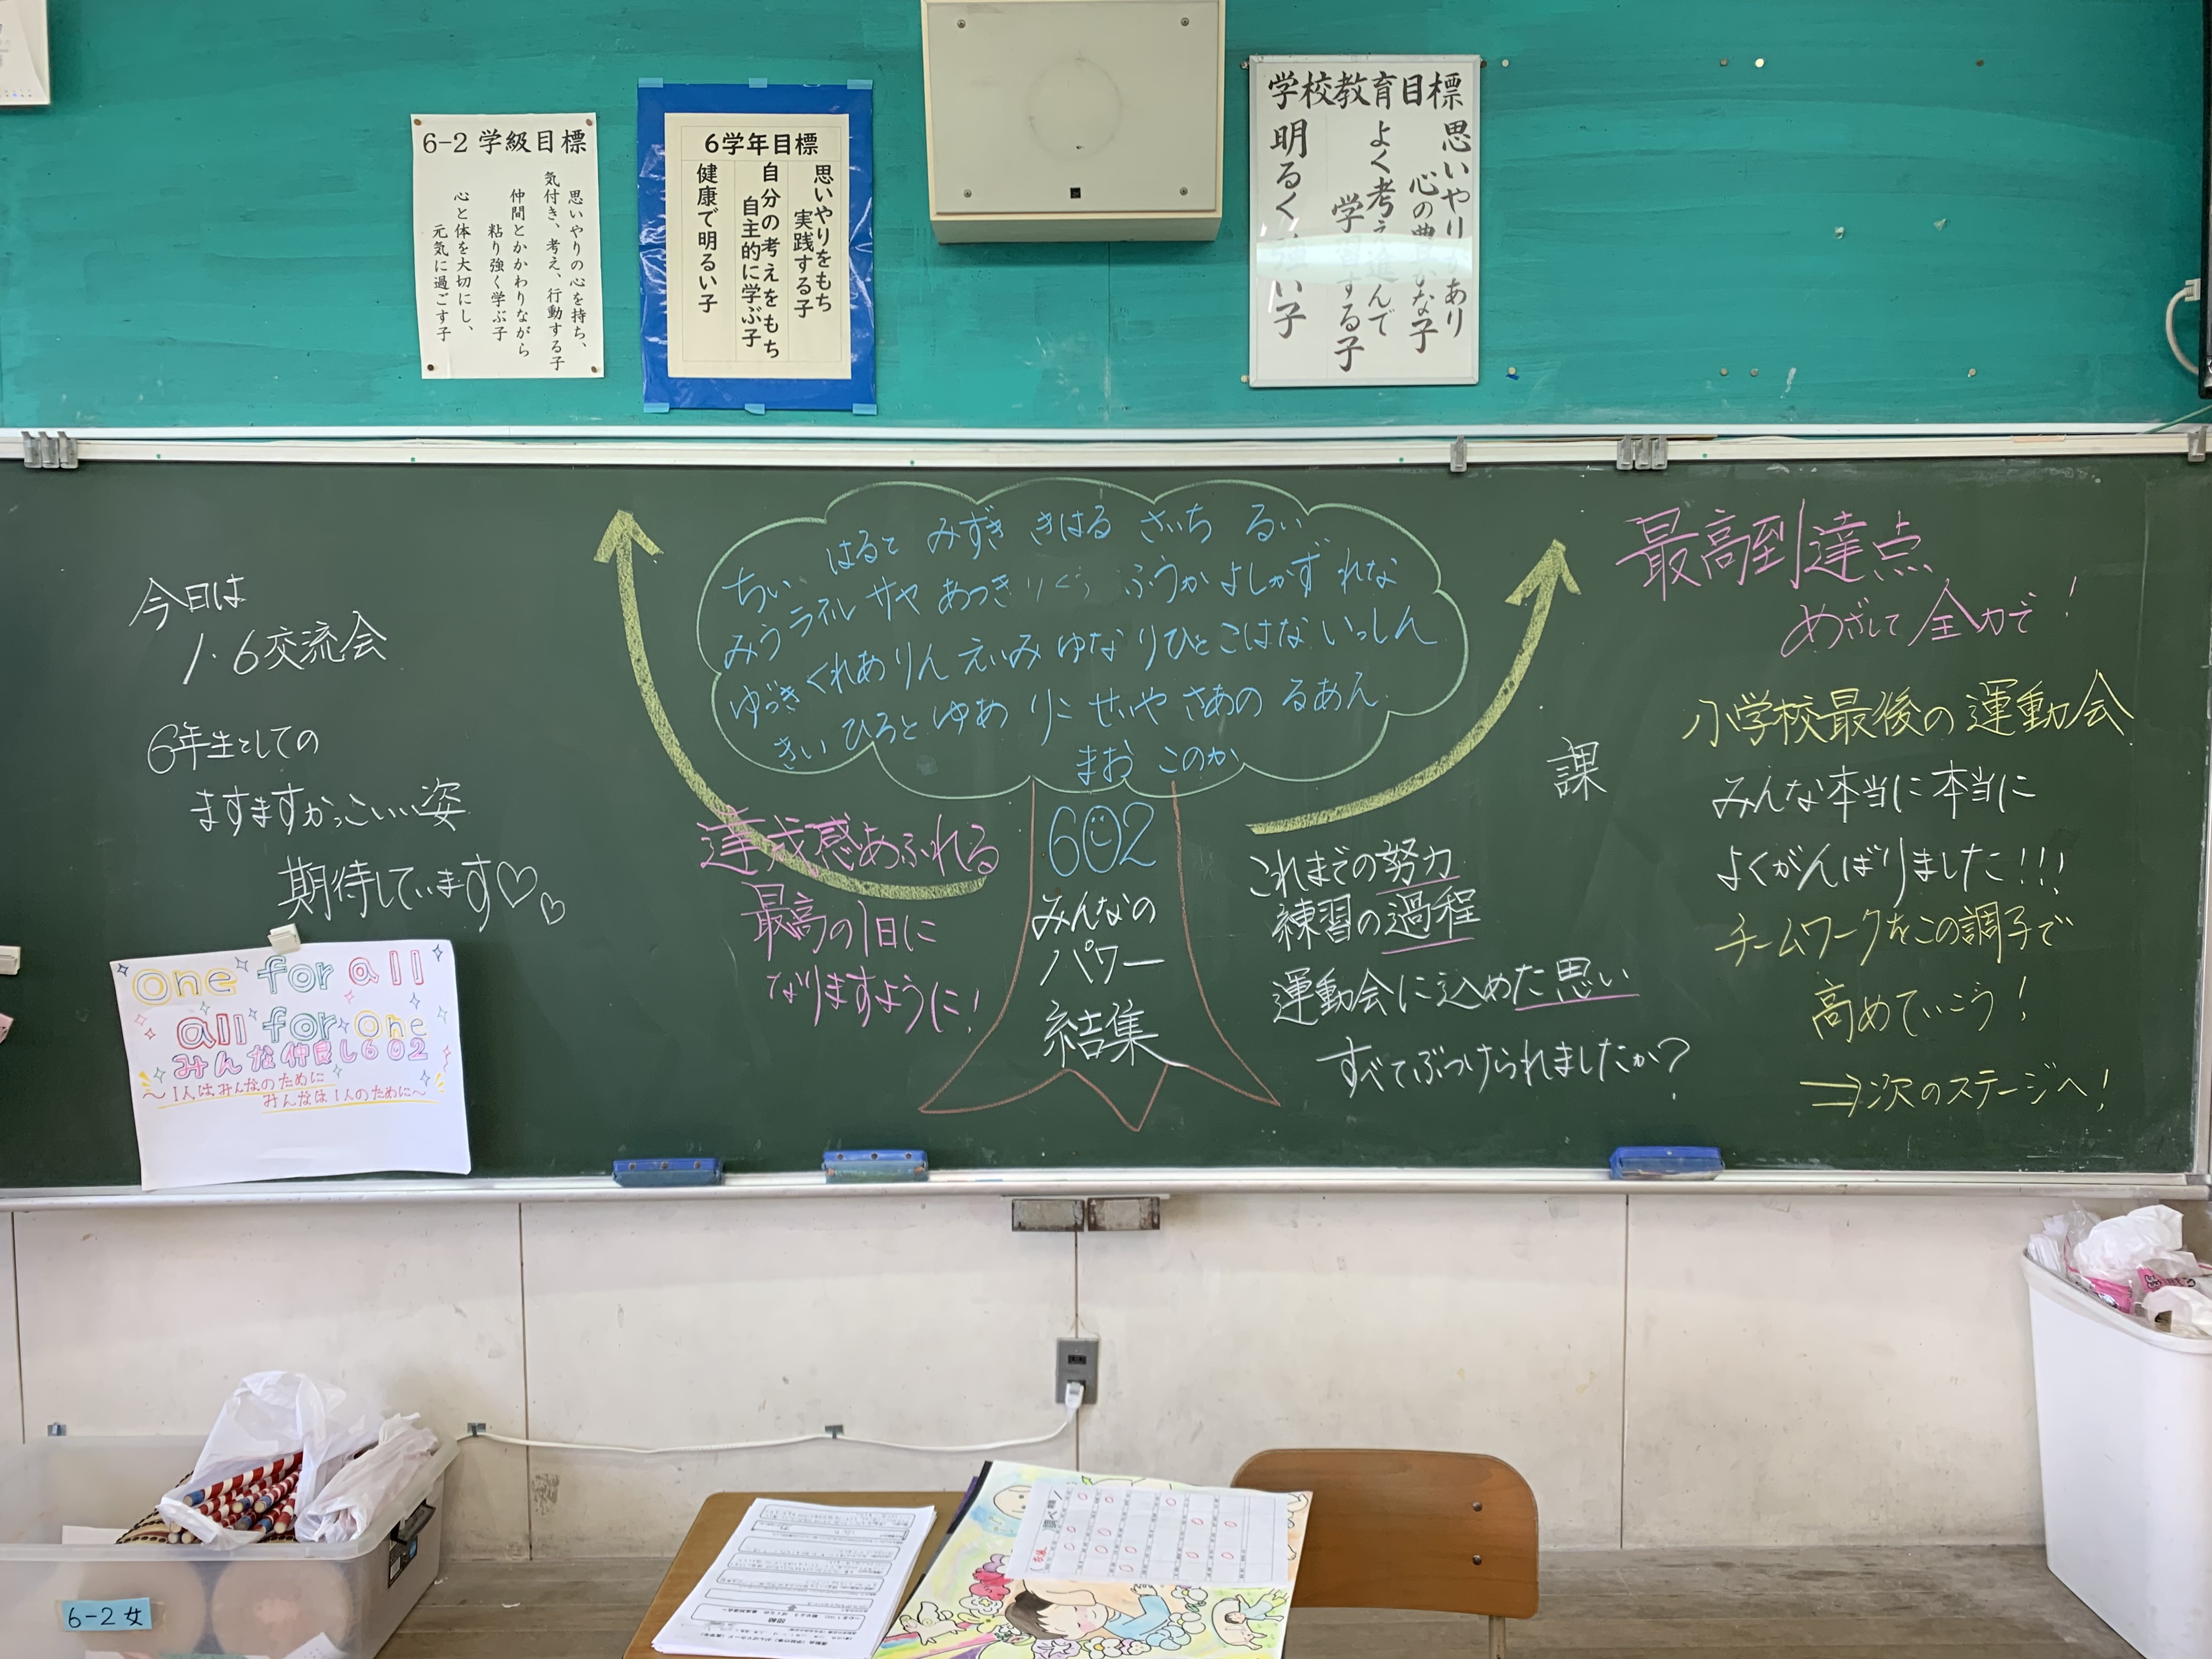 6-2 学級目標
思いやりの心を持ち、
気付き、考え、行動する子
仲間とかかわりながら
粘り強く学ぶ子
心と体を大切にし、
元気に過ごす子
6学年目標
思いやりをもち
実践する子
自分の考えをもち
自主的に学ぶ子
健康で明るい子
学校教育目標
思いやりがあり
心の豊かな子
よく考え進んで
学習する子
明るく強い子
今日は
1・6交流会
6年生としての
ますますかっこいい姿
期待しています♡♡
One for all
all for One
みんな仲良し602
～1人はみんなのために
みんなは1人のために～
はると みずき きはる さいち るい
ちい ラネル サヤ あつき りく ふうか よしかず れな
みう くれあ りん えいみ ゆな りひと こはな いっしん
ゆづき ひろと ゆめ りこ せいや さあの るあん
きい まお このか
602
みんなの
パワー
結集
達成感あふれる
最高の1日に
なりますように!
これまでの努力
練習の過程
運動会に込めた思い
すべてぶつけられましたか?
課
最高到達点
めざして全力で!
小学校最後の運動会
みんな本当に本当に
よくがんばりました!!!
チームワークをこの調子で
高めていこう!
⇒次のステージへ!
6-2 女